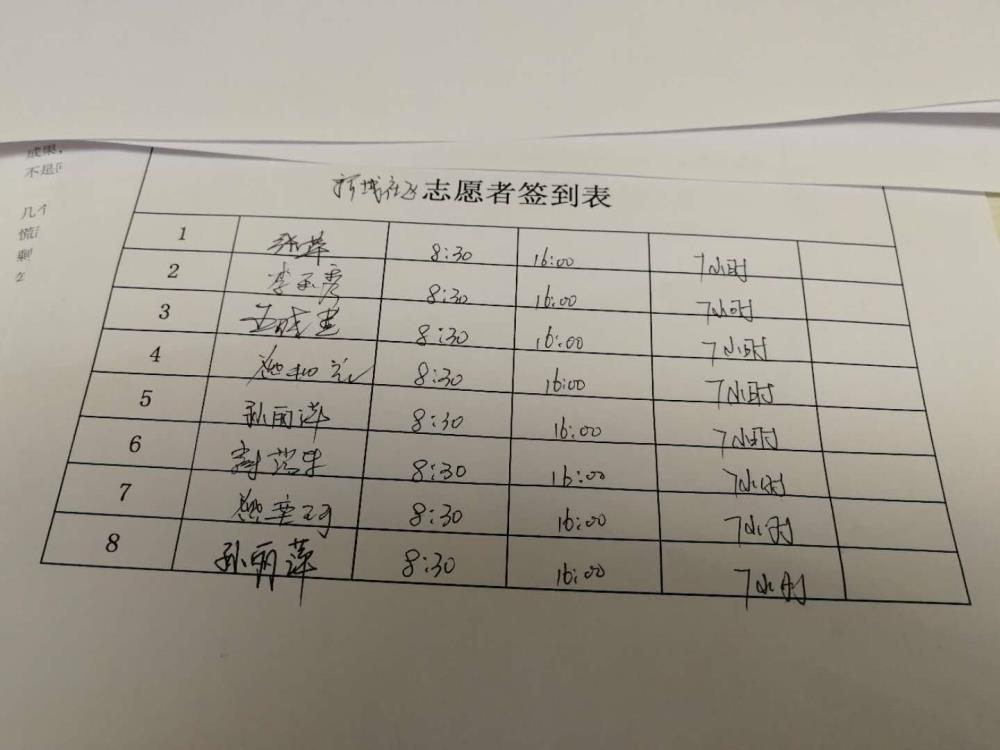 成果,
不是
几个
慌
剩
志愿者签到表
1 张萍 8:30 16:00 7小时
2 李玉秀 8:30 16:00 7小时
3 8:30 16:00 7小时
4 8:30 16:00 7小时
5 孙丽萍 8:30 16:00 7小时
6 8:30 16:00 7小时
7 8:30 16:00 7小时
8 孙丽萍 8:30 16:00 7小时